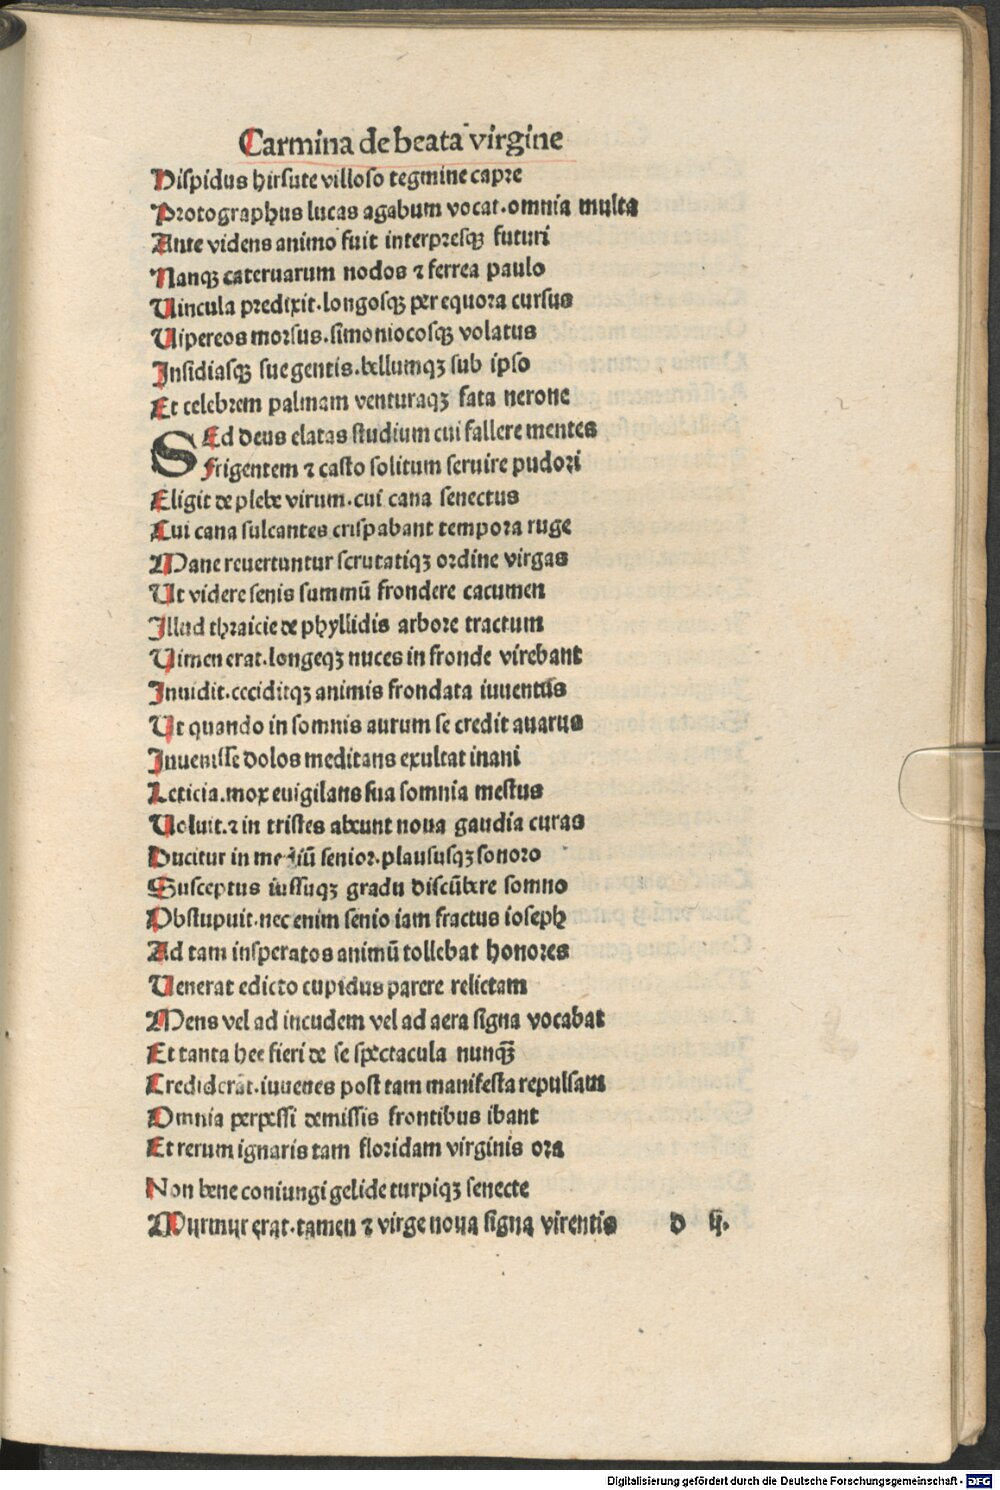 Carmina de beata virgine
Hispidus hirsute villoso tegmine capre
Protographus lucas agabum vocat.omnia multa
Ante videns animo fuit interpresqꝫ futuri
Nanqꝫ cateruarum nodos ⁊ ferrea paulo
Vincula predixit.longosqꝫ per equora cursus
Vipereos morsus.simoniocosqꝫ volatus
Insidiasqꝫ sue gentis.bellumqꝫ sub ipso
Et celebrem palmam venturaqꝫ fata nerone
SEd deus elatas studium cui fallere mentes
Frigentem ⁊ casto solitum seruire pudori
Eligit de plebe virum.cui cana senectus
Cui cana sulcantes crispabant tempora ruge
Mane reuertuntur scrutatiqꝫ ordine virgas
Ut videre senis summū frondere cacumen
Illud thraicie de phyllidis arbore tractum
Vimen erat.longeqꝫ nuces in fronde virebant
Inuidit.ceciditqꝫ animis frondata iuuentus
Ut quando in somnis aurum se credit auarus
Inuenisse dolos meditans exultat inani
Leticia.mox euigilans sua somnia mestus
Voluit.⁊ in tristes abeunt noua gaudia curas
Ducitur in mediū senior.plaususqꝫ sonoro
Susceptus iussuqꝫ gradu discūbere somno
Obstupuit.nec enim senio iam fractus ioseph
Ad tam insperatos animū tollebat honores
Venerat edicto cupidus parere relictam
Mens vel ad incudem vel ad aera signa vocabat
Et tanta hec fieri de se spectacula nunqꝫ̄
Crediderat.iuuenes post tam manifesta repulsam
Omnia perpessi demissis frontibus ibant
Et rerum ignaris tam floridam virginis ora
Non bene coniungi gelide turpiqꝫ senecte
Murmur erat.tamen ⁊ virge noua signa virentis d ij.
Digitalisierung gefördert durch die Deutsche Forschungsgemeinschaft - DFG